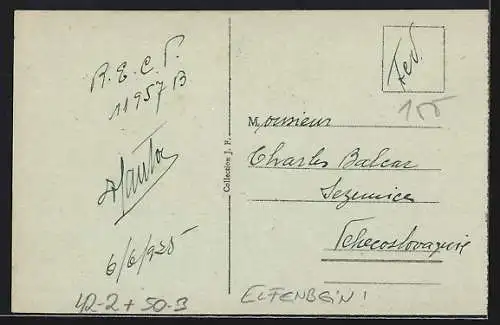 R. E. C. P.
11957 B
6/6/925
42-2 + 50-3
Collection J. F.
Fév.
155
Monsieur
Charles Balcar
Sezemice
Tchécoslovaquie
ELFENBEIN!